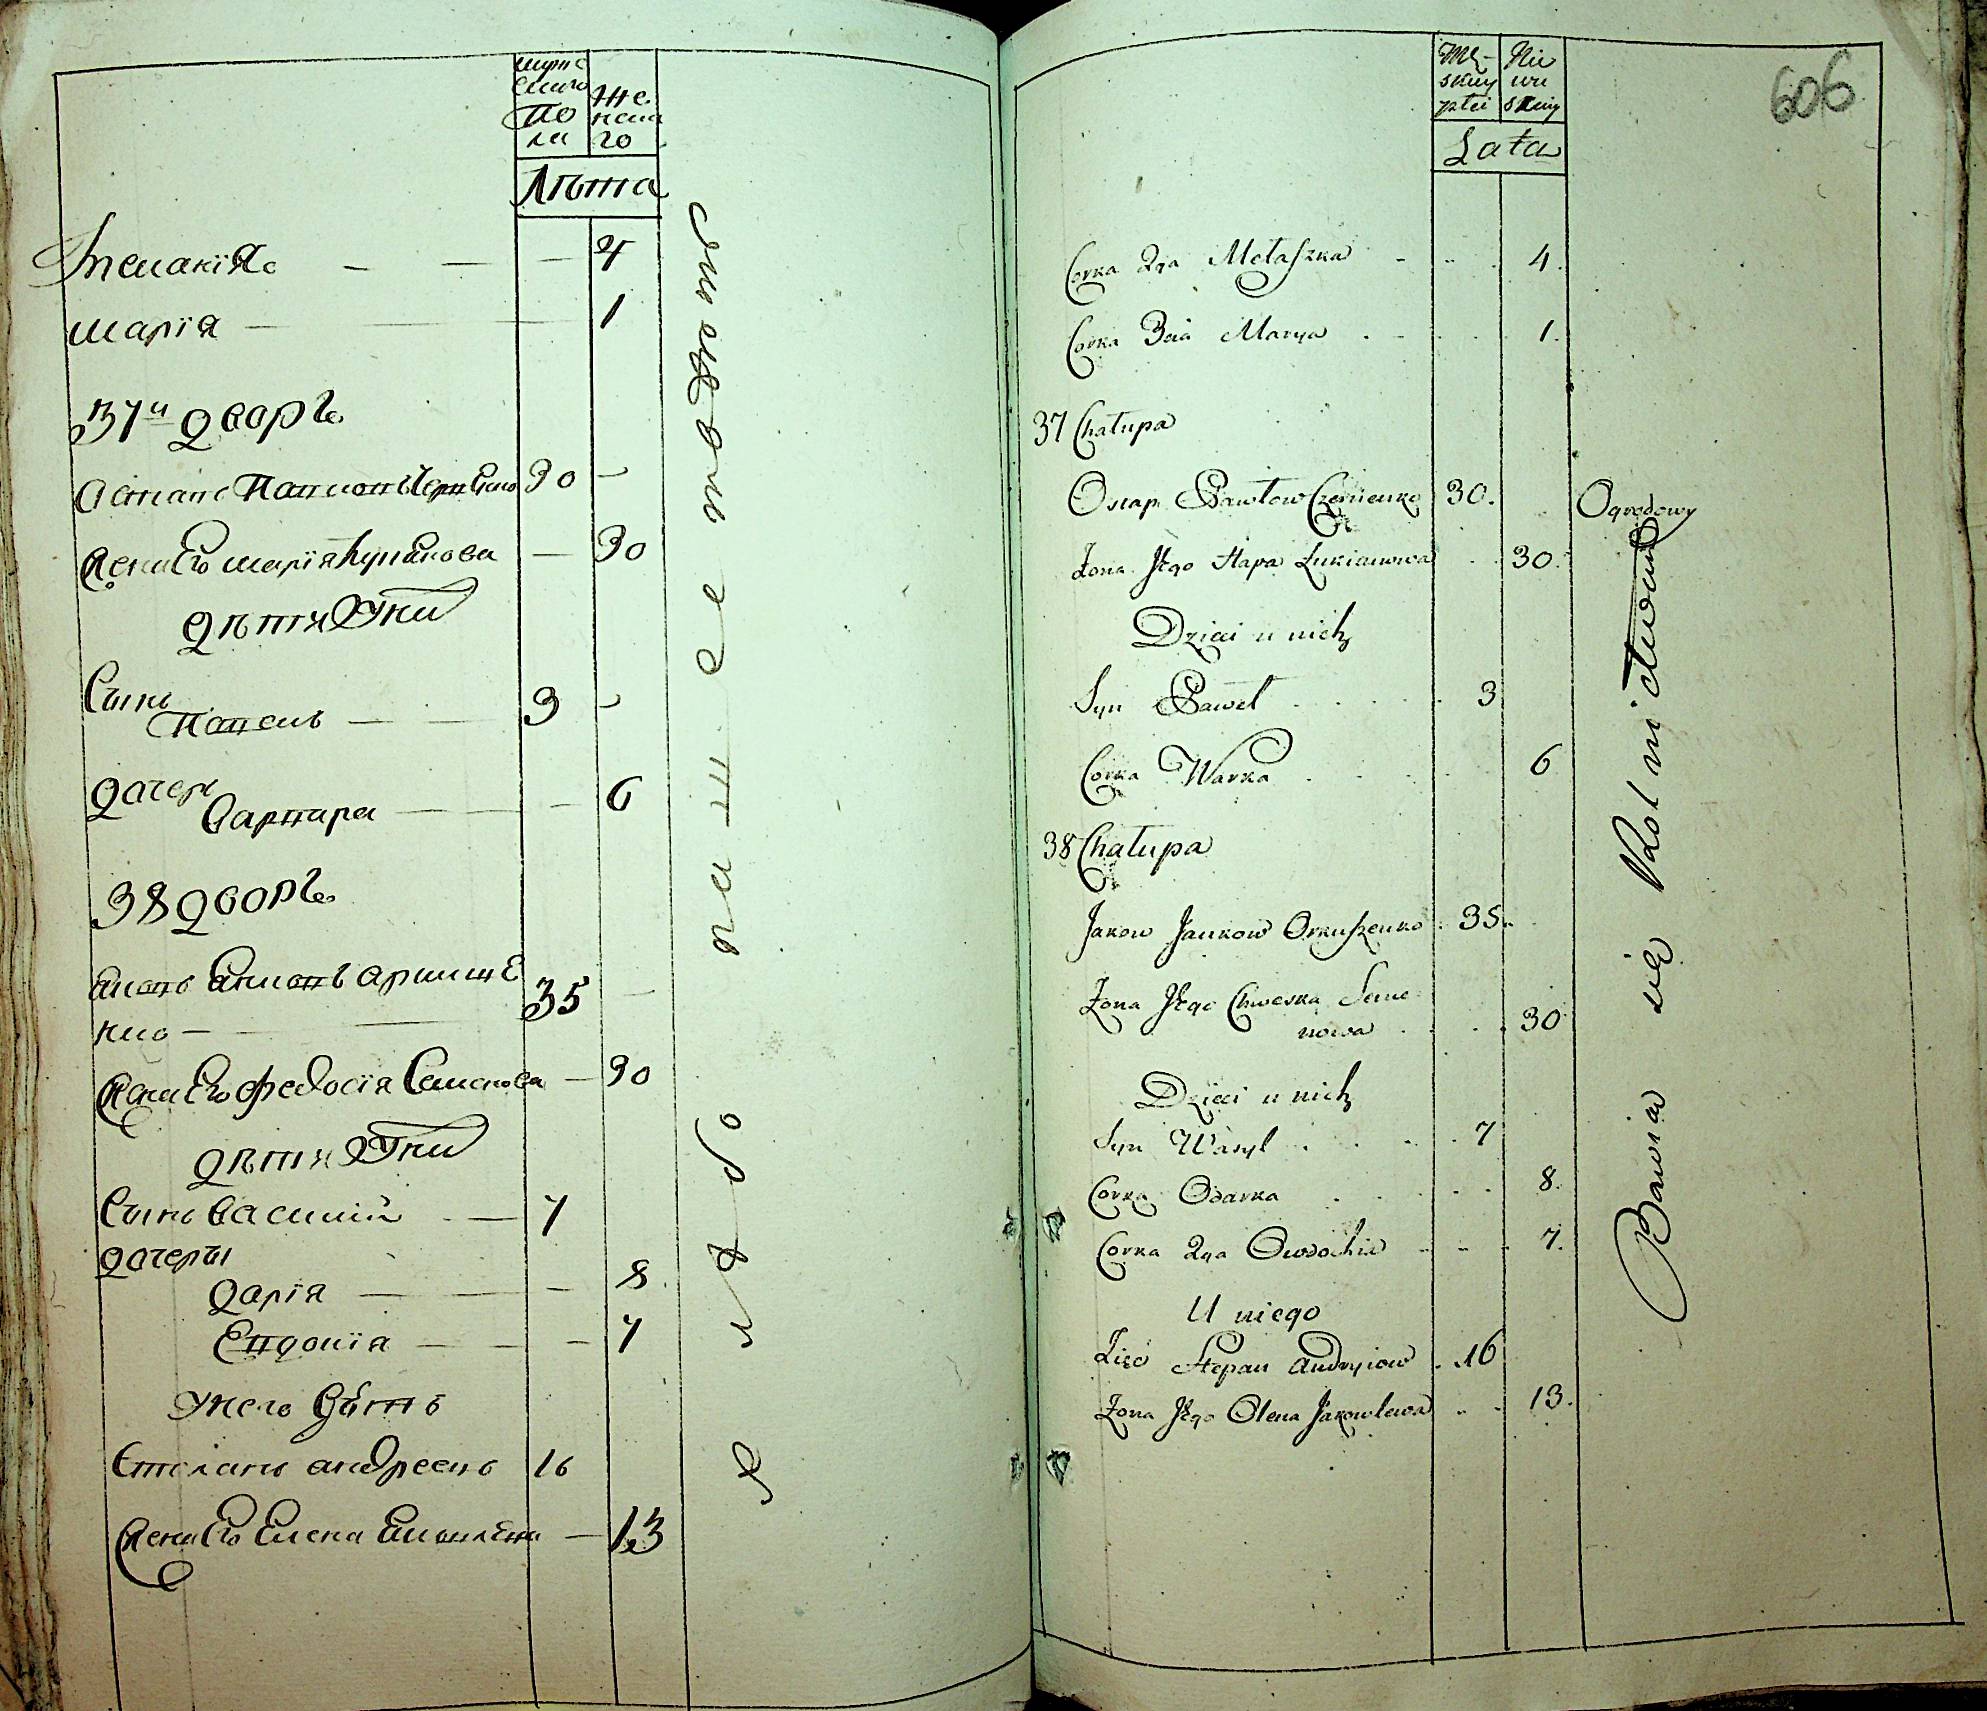 мужескаго пола
женскаго
Лѣта
4
Марія — 1
37й дворъ
Остапъ Павловъ 30 —
жена Его Марія Лукянова — 30
дѣти у Них
Сынъ
Павелъ — 3
дочерь
Варвара — 6
38 дворъ
35
жена Его Федосія Семенова — 30
дѣти у Них
Сынъ Василий — 7
дочеры
Дарія — 8
Евдокия — 7
у него зять
Степанъ андреевъ 16
жена Его Елена Яковлева — 13
606
Męskiey płci
Niewieskiey
Lata
Corka 2ga Metaszka 4.
Corka 3cia Marya 1.
37 Chałupa
Ostap Pawłow Czernienko 30. Ogrodowy
Zona Jego Hapa Łukianowa 30.
Dzieci u nich
Syn Paweł 3
Corka Warka 6
38 Chałupa
Jakow Jankow Orkuszenko 35.
Zona Jego Chweska Seme
nowa 30
Dzieci u nich
Syn Wasyl 7
Corka Odarka 8.
Corka 2ga Owdochia 7.
U niego
Zięć Stepan Andryiow 16
Zona Jego Olena Jakowlewa 13.
Bawia się Rolnictwem